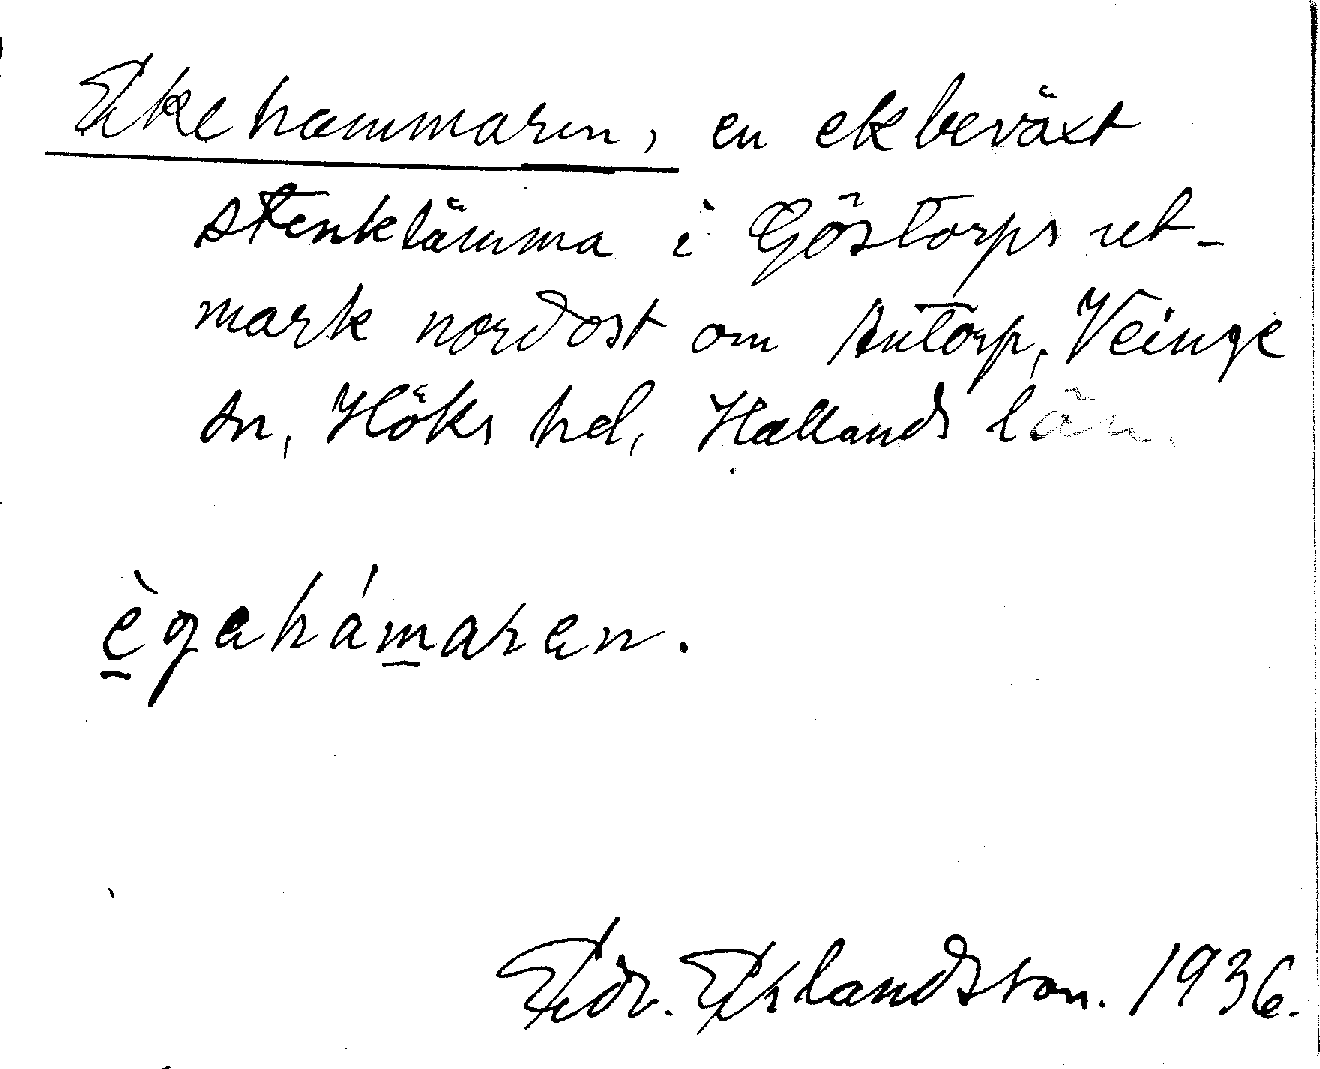 Ekehammaren, en ekbeväxt
stenklämma i Göstorps ut-
mark nordost om Antorp, Veinge
sn, Höks hd, Hallands län.
ègahámaren.
Edv. Eklandsson. 1936.